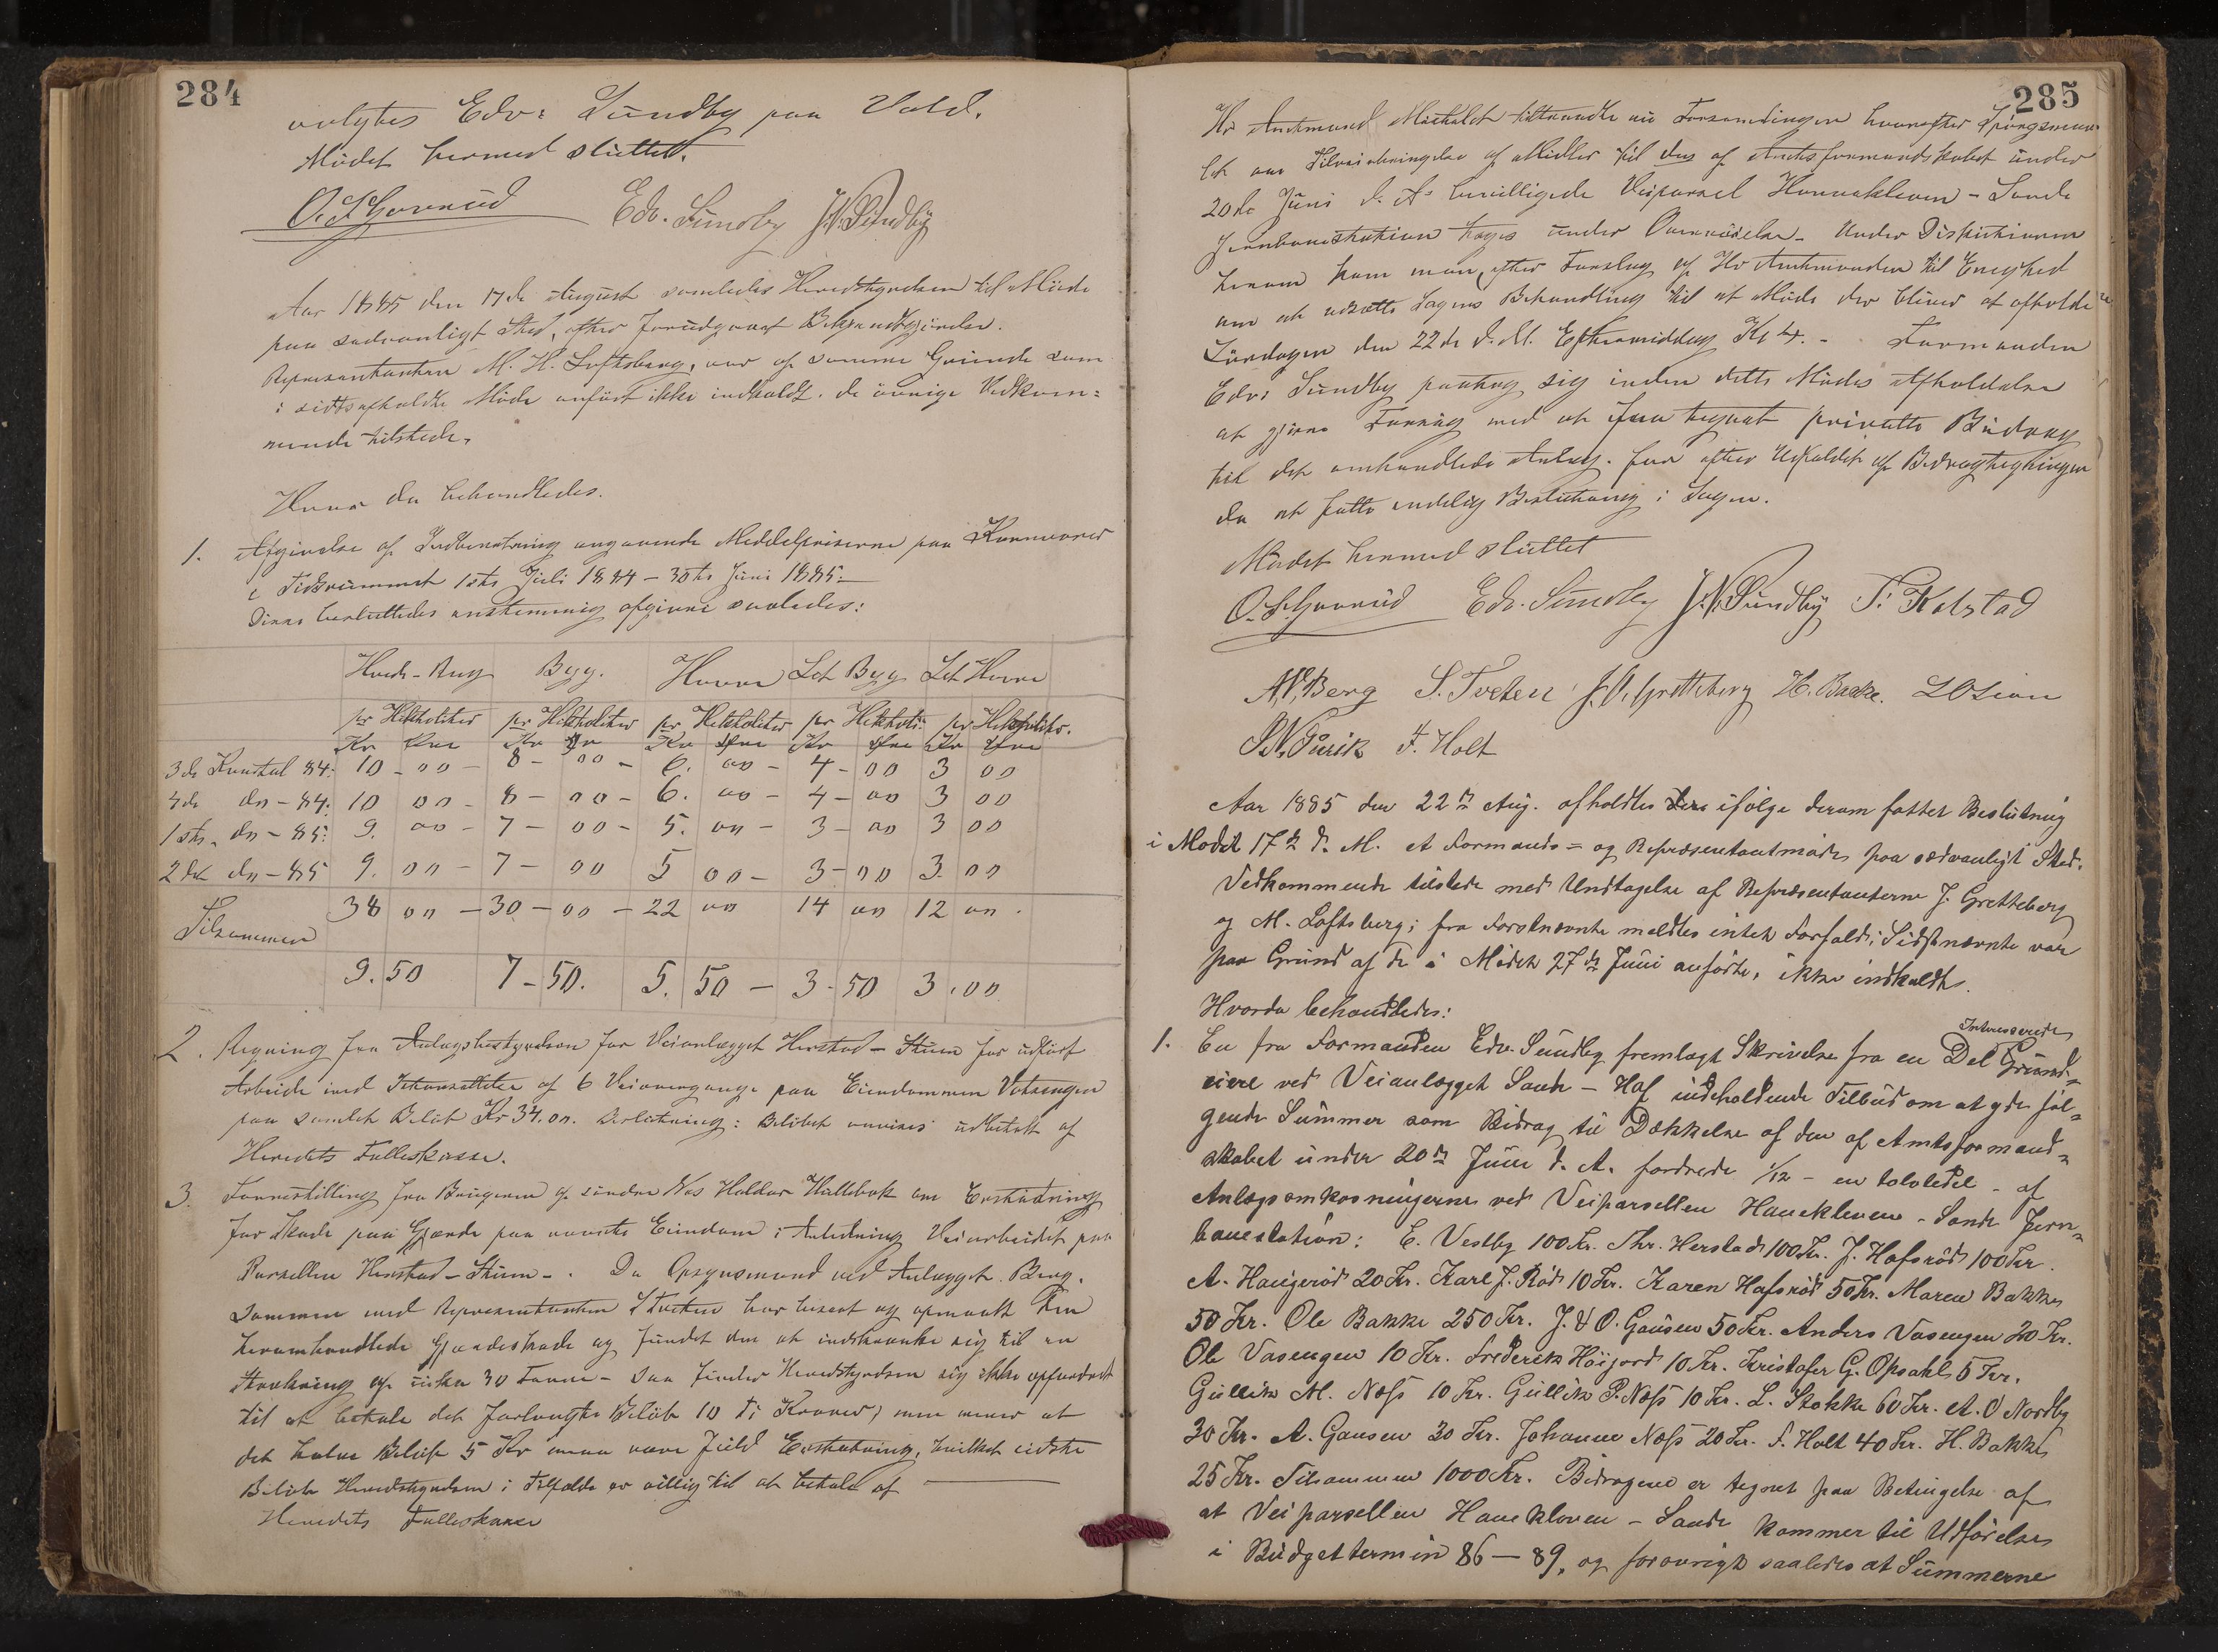 284
valgtes Edv: Sundby paa Vold.
Mödet hermed sluttet.
O. S. Gaarud Edv. Sundby J. N. Sundby
Aar 1885 den 17de August samledes Herredstyrelsen til Möde
paa sedvanligt Sted, efter forudgaaet Bekjendtgjörelse.
Repræsentanten M. H. Loftsberg, var af samme Grunde som
i sidtsafholdte Möde anfört ikke indkaldt. de övrige Vedkom=
mende tilstede.
Hvor da behandledes.
1. Afgivelse af Indberetning angaaende Middelpriserne paa Kornvarer
i Tidsrummet 1ste Juli 1884 – 30te Juni 1885.
Disse besluttedes enstemmig afgivne saaledes:
Hvede-Rug Byg. Havre Let Byg Let Havre
pr Hektoliter pr Hektoliter pr Hektoliter pr Hektolit. pr Hektolitr.
Kr Øre Kr Ør Kr Øre Kr Øre Kr Øre
3de Kvartal 84: 10 - 00 - 8 - 00 - 6. 00 - 4 - 00 3 00
4de do - 84: 10 00 - 8 - 00 - 6. 00 - 4 - 00 3 00
1ste do - 85: 9. 00 - 7 - 00 - 5. 00 - 3 - 00 3 00
2det do - 85 9. 00 - 7 - 00 5 00 - 3 - 00 3. 00
Tilsammen 38 00 - 30 - 00 - 22 00 14 00 12 00.
9.50 7-50. 5.50 - 3-50 3.00
2. Regning fra Anlægsbestyrelsen for Veianlægget Herstad - Skum for udfört
Arbeide ved af 6 Veiovergange paa Eiendommen Vasengen
paa samlet Belöb Kr 34.00. Beslutning: Belöbet anvises udbetalt af
Herredets Felleskasse.
3. Forestilling fra Brugeren af söndre Næs Halvor Hallebæk om Erstatning
for Skade paa Gjærde paa nævnte Eiendom i Anledning Veiarbeidet paa
Parsellen Herstad - Skum -. Da Opsynsmand ved Anlægget Berg.
sammen med Repræsentanten S Tveten har beseet og opmaalt den
heromhandlede Gjærdeskade og fundet den at indskrænke sig til en
Strækning af cirka 30 Favne - saa finder Herredstyrelsen sig ikke opfordret
til at betale det forlangte Belöb 10 ti Kroner, men mener at
det halve Belöb 5 Kr maa være fuld Erstatning, hvilket sidste
Belöb Herredstyrelsen i Tilfælde er villig til at betale af
Herredets Felleskasse
285
Hr Amtmand tiltraadte nu Forsamlingen hvorefter Spörgsmaa-
let om Tilveiebringelse af Midler til den af Amtsformandskabet under
20de Juni d. A. bevilligede Veiparsel Hanekleven - Sande
Jernbanestation toges under Overveielse. Under Diskutionen
herom kom man, efter Forslag af Hr Amtmanden til Enighed
om at udsætte Sagens Behandling til et Möde der bliver at afholde
Lördagen den 22de d. M. Eftermiddag Kl 4. - Formanden
Edv: Sundby paatog sig inden dette Mödes Afholdelse
at gjöre Forsög med at faa tegnet private Bidrag
til det omhandlede Anlæg. for efter Udfaldet af Bidragtegningen
da at fatte endelig Beslutning i Sagen.
Mödet hermed sluttet
O. S. Gaarud Edv. Sundby J. N. Sundby T. Kolstad
A. P. Berg S. Tveten J. A. Gretteberg H. Bakke. L Olsen
F. Holt
Aar 1885 den 22de Aug. afholdtes ifölge derom fattet Beslutning
i Mödet 17de d. M. et Formands= og Repræsentantmöde paa sædvanligt Sted.
Vedkommende tilstede med Undtagelse af Repræsentanterne J. Gretteberg
og M. Loftsberg; fra Förstnævnte meldtes intet Forfald; Sidstnævnte var
paa Grund af de i Mödet 27de Juni anförte, ikke indkaldt.
Hvorda behandledes:
1. En fra Formanden Edv. Sundby fremlagt Skrivelse fra en Del Interesserede Grund=
eiere ved Veianlægget Sande - Hof indeholdende Tilbud om at yde föl=
gende Summer som Bidrag til Dækkelse af den af Amtsformand=
skabet under 20de Juni d. A. fordrede 1/12 - en tolvtedel - af
Anlægsomkosningerne ved Veiparsellen Hanekleven - Sande Jern=
banestation: E. Vestby 100 Kr. Chr. Herstad 100 Kr. J. Hafsröd 100 Kr.
A. Haugeröd 20 Kr. Karl J. Röd 10 Kr. Karen Hafsröd 50 Kr. Maren Bakke
50 Kr. Ole Bakke 250 Kr. J. & O. Gausen 50 Kr. Anders Vasengen 20 Kr.
Ole Vasengen 10 Kr. Frederek Höijord 10 Kr. Kristofer G. Opsahl 5 Kr.
Gullik M. Næss 10 Kr. Gullik P. Næss 10 Kr. L. Stokke 60 Kr. A. O Nordby
30 Kr. A. Gausen 30 Kr. Johanne Næss 20 Kr. F. Holt 40 Kr. H. Bakke
25 Kr. Tilsammen 1000 Kr. Bidragene er tegnet paa Betingelse af
at Veiparsellen Hanekleven - Sande kommer til Udförelse
i Budgettermin 86 - 89, og forövrigt saaledes at Summerne